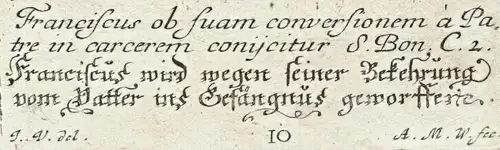 Franciscus ob suam conversionem à Pa-
tre in carcerem conijcitur S. Bon. C. 2.
Franciscus wird wegen seiner Bekehrung
vom Vatter ins Gefängnüs geworffene.
J. V. del. 10 A. M. W. fec.